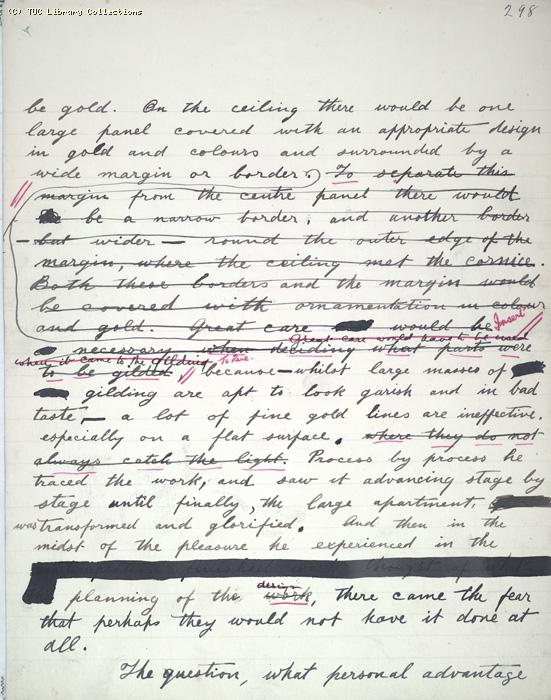 (C) TUC Library Collections
298
be gold. On the ceiling there would be one
large panel covered with an appropriate design
in gold and colours and surrounded by a
wide margin or border. To separate this
margin from the centre panel there would
be a narrow border, and another border
- but wider - round the outer edge of the
margin, where the ceiling met the cornice.
Both these borders and the margin would
be covered with ornamentation in colour
and gold. Great care would be Insert
Great care would have to be used
necessary when deciding what parts were
when it came to the gilding
to be gilded, because - whilst large masses of
gilding are apt to look garish and in bad
taste, - a lot of fine gold lines are ineffective.
especially on a flat surface. where they do not
always catch the light. Process by process he
traced the work, and saw it advancing stage by
stage until finally, the large apartment,
was transformed and glorified. And then in the
midst of the pleasure he experienced in the
design
planning of the work, there came the fear
that perhaps they would not have it done at
all.
The question, what personal advantage